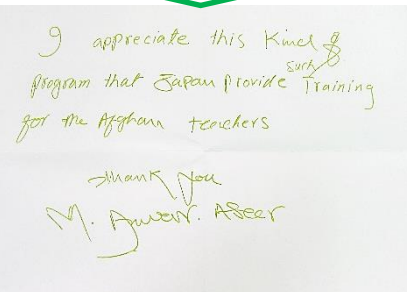 I appreciate this Kind of
program that Japan provide such Training
for the Afghan teachers
Thank you
M. Anwar. Aseer